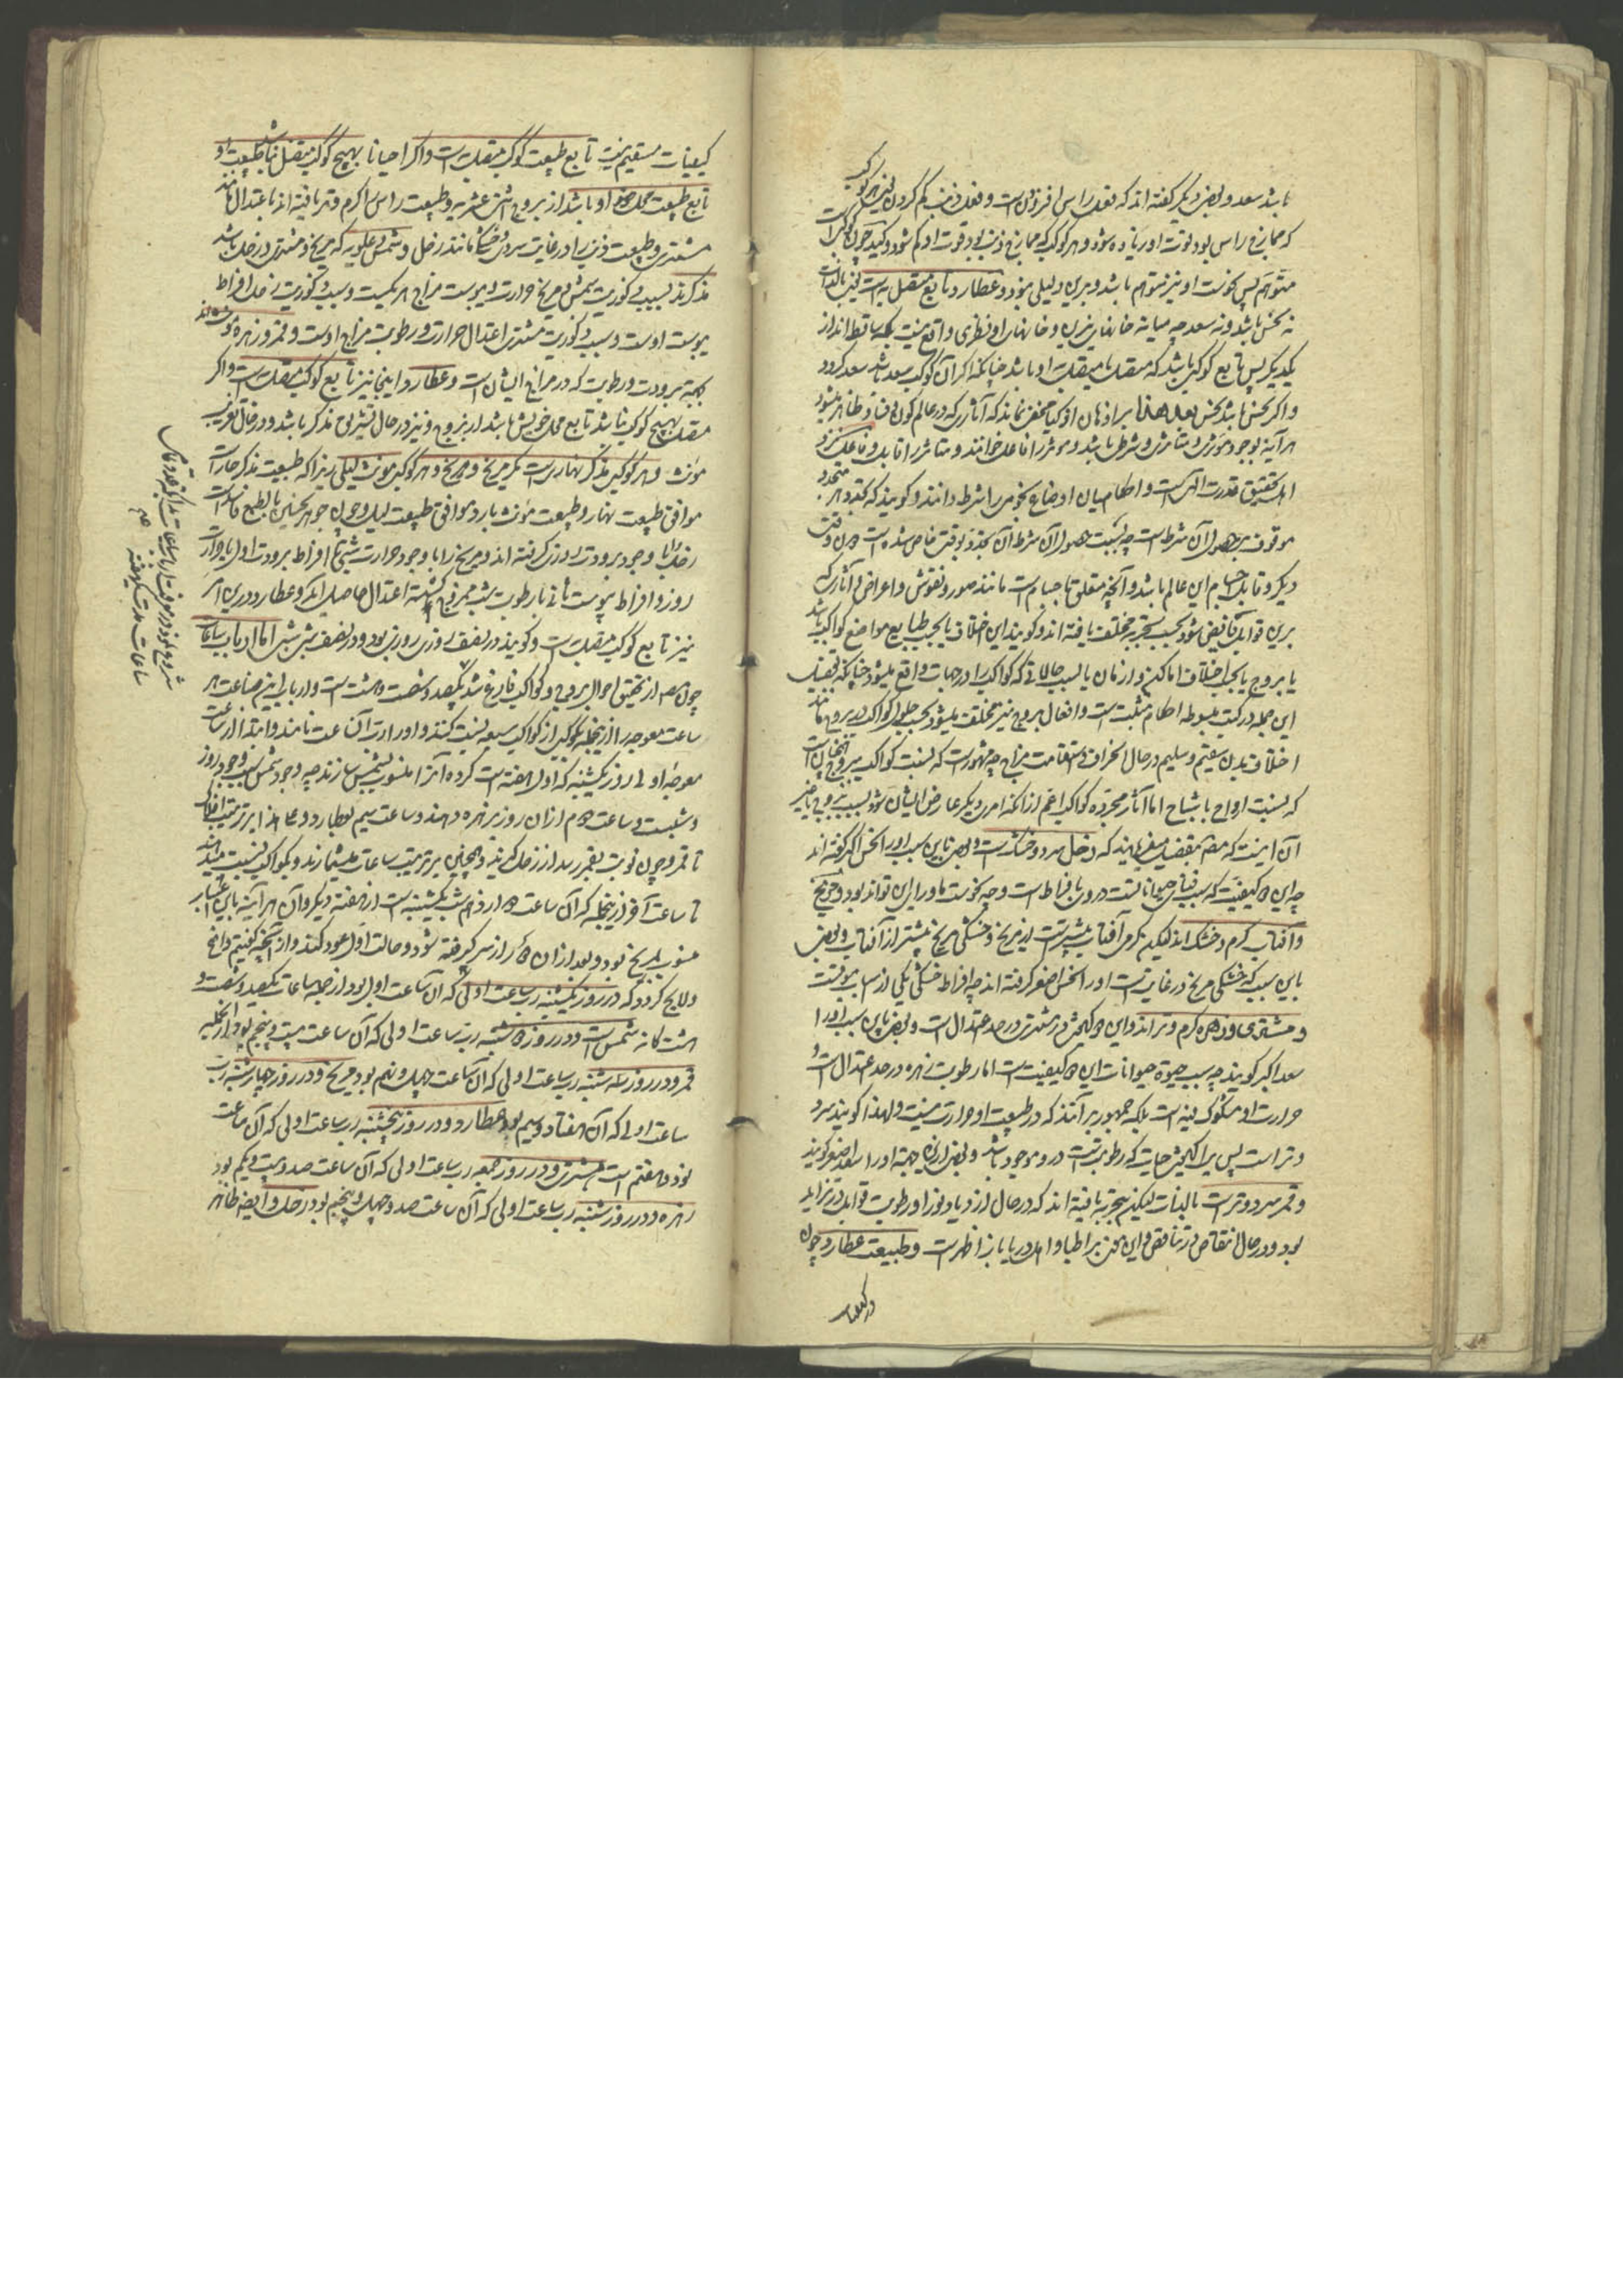 باشد سعد و بعضی دیگر گفته اند که فعل راس افزونی است و فعل ذنب کم کردن یعنی هر کوکب
که ممازج راس بود قوت او زیاده شود و هر کوکب که ممازج ذنب بود قوت او کم شود
متوهم پس نحوست او نیز متوهم باشد و برین دلیلی نبود و عطارد تابع متصل به است یعنی بالذات
نه نحس باشد و نه سعد چه میانه خانهای نیرین و خانهای او نظری واقع نیست بلکه ساقط اند از
یکدیگر پس تابع کوکبی باشد که متصل یا متصل به او باشد چنانکه اگر آن کوکب سعد باشد سعد گردد
و اگر نحس باشد نحس بعد هذا بر اذهان اذکیا مخفی نماند که آثاری که در عالم کون و فساد ظاهر میشود
هر آینه بوجود مؤثری و متاثری و شرطی باشد و مؤثر را فاعل خوانند و متاثر را قابل و فاعل نزد
اهل تحقیق قدرت الهی است و احکامیان اوضاع نجومی را شرط دانند و گویند که تجدد هر متجدد
موقوف بر حصول آن شرط است چه بسبب حصول آن شرط آن تجدد بوقت خاص شده است دون وقت
دیگر و قابل اجسام این عالم باشد و آنچه متعلق باجسام است مانند صور و نفوس و اعراض و آثاری که
برین قوابل فایض شود بحسب تجربه مختلف یافته اند و گویند این اختلاف یا بحسب طبایع مواضع کواکب باشد
یا بروج یا بحسب اختلاف اماکن و ازمان یا بسبب حالاتی که کواکب را در جهات واقع میشود چنانکه تفصیل
این جمله در کتب مبسوطه احکام مثبت است و افعال بروج نیز مختلف میشود بحسب حلول کواکب در بروج مانند
اختلاف بدن سقیم و سلیم در حال انحراف و استقامت مزاج چه مشهورست که نسبت کواکب ببروج همچنان است
که نسبت ارواح باشباح اما آثار مجرده کواکب اعم از آنکه امری دیگر عارض ایشان شود بسبب بروج یا غیر
آن اینست که مصر مفصل میفرمایند که زحل سرد و خشکست و بعضی باین سبب او را نحس اکبر گفته اند
چه این دو کیفیت که سبب فنای حیوانات است درو بافراط است و چه نحوست ماورای این تواند بود و مریخ
و آفتاب گرم و خشک اند لیکن گرمی آفتاب بیشترست از مریخ و خشکی مریخ بیشتر از آفتاب و بعضی
باین سبب که خشکی مریخ در غایتست او را نحس اصغر گرفته اند چه افراط خشکی یکی از اسباب موتست
و مشتری و زهره گرم و تر اند و این دو کیفیت در مشتری در حد اعتدال است و بعضی باین سبب او را
سعد اکبر گویند چه سبب حیوة حیوانات این دو کیفیت است اما رطوبت زهره در حد اعتدال است و
حرارت او مشکوک فیه است بلکه جمهور بر آنند که در طبیعت او حرارت نیست و لهذا گویند سرد
و تر است پس یک کیفیت حیات که رطوبتست درو موجود باشد و بعضی ازین جهة او را سعد اصغر گویند
و قمر سرد و تر است بالذات لیکن بتجربه یافته اند که در حال ازدیاد نور او رطوبت قوابل در تزاید
بود و در حال انتقاص در تناقص و این معنی بر اطبا و اهل دریا بار ظاهرست و طبیعت عطارد چون
در کیفیات
کیفیات مستقیم نیست تابع طبیعت کوکب متصل به است و اگر احیانا بهیچ کوکب متصل نباشد طبیعت او
تابع طبیعت محل خود او باشد از بروج اثنی عشریه و طبیعت راس را گرم و تر یافته اند باعتدال مانند
مشتری و طبیعت ذنب را در غایت سردی و خشکی مانند زحل و شمس و علویه که مریخ و مشتری و زحل باشد
مذکرند سبب ذکوریت شمس و مریخ حرارت و یبوست مزاج هر یکیست و سبب ذکوریت زحل افراط
یبوست اوست و سبب ذکوریت مشتری اعتدال حرارت و رطوبت مزاج اوست و قمر و زهره مونث اند
بجهة برودت و رطوبت که در مزاج ایشان است و عطارد اینجا نیز تابع کوکب متصل به است و اگر
متصل بهیچ کوکب نباشد تابع محل خویش باشد از بروج و نیز در حال تشریق مذکر باشد و در حال تغریب
مونث و هر کوکبی مذکر نهاری است مگر مریخ و هر کوکبی مونث لیلی زیرا که طبیعت مذکر حار است
موافق طبیعت نهار و طبیعت مونث بارد موافق طبیعت لیل و چون جوهر نحسین بالطبع فاسد است
زحل را با وجود برودت روزی گرفته اند و مریخ را با وجود حرارت شبی تا افراط برودت اول بحرارت
روز و افراط یبوست ثانی برطوبت شب ممزوج گشته اعتدال حاصل آید و عطارد درین امر
نیز تابع کوکب متصل به است و گویند در نصف روزی روزی بود و در نصف شبی شبی اما ارباب ساعات
چون مصر از تحقیق احوال بروج و کواکب فارغ شد یکصد و شصت و هشت است و ارباب این صناعت هر
ساعت معوجه را از آنجمله بکوکبی از کواکب سبعه نسبت کنند و او را رب آن ساعت نامند و ابتدا از ساعت
معوجه اولی روز یکشنبه که اول هفته است کرده آنرا منسوب بشمس سازند چه وجود شمس سبب وجود روز
و شبست و ساعت دوم از آن روز بزهره دهند و ساعت سیم بعطارد و علی هذا بر ترتیب افلاک
تا قمر و چون نوبت بقمر رسد از زحل گیرند و همچنین بر ترتیب ساعات میشمارند و بکواکب نسبت میدهند
تا ساعت آخر از آنجمله که آن ساعت دوازدهم شب یکشنبه است از هفته دیگر و آن هر آینه باین اعتبار
منسوب بمریخ بود و بعد از آن دور از سر گرفته شود و حالت اول عود کند و از آنچه گفتیم واضح
و لایح گردد که در روز یکشنبه رب ساعت اولی که آن ساعت اول بود از جمله ساعات یکصد و شصت و
هشت گانه شمس است و در روز دوشنبه رب ساعت اولی که آن ساعت بیست و پنجم بود از آنجمله
قمر و در روز سه شنبه رب ساعت اولی که آن ساعت چهل و نهم بود مریخ و در روز چهارشنبه رب
ساعت اولی که آن هفتاد و سیم بود عطارد و در روز پنجشنبه رب ساعت اولی که آن ساعت
نود و هفتم است مشتری و در روز جمعه رب ساعت اولی که آن ساعت صد و بیست و یکم بود
زهره و در روز شنبه رب ساعت اولی که آن ساعت صد و چهل و پنجم بود زحل و ایضا ظاهر
شروع نمود در معرفت ارباب ساعات
ساعات مدت یکهفته
صح